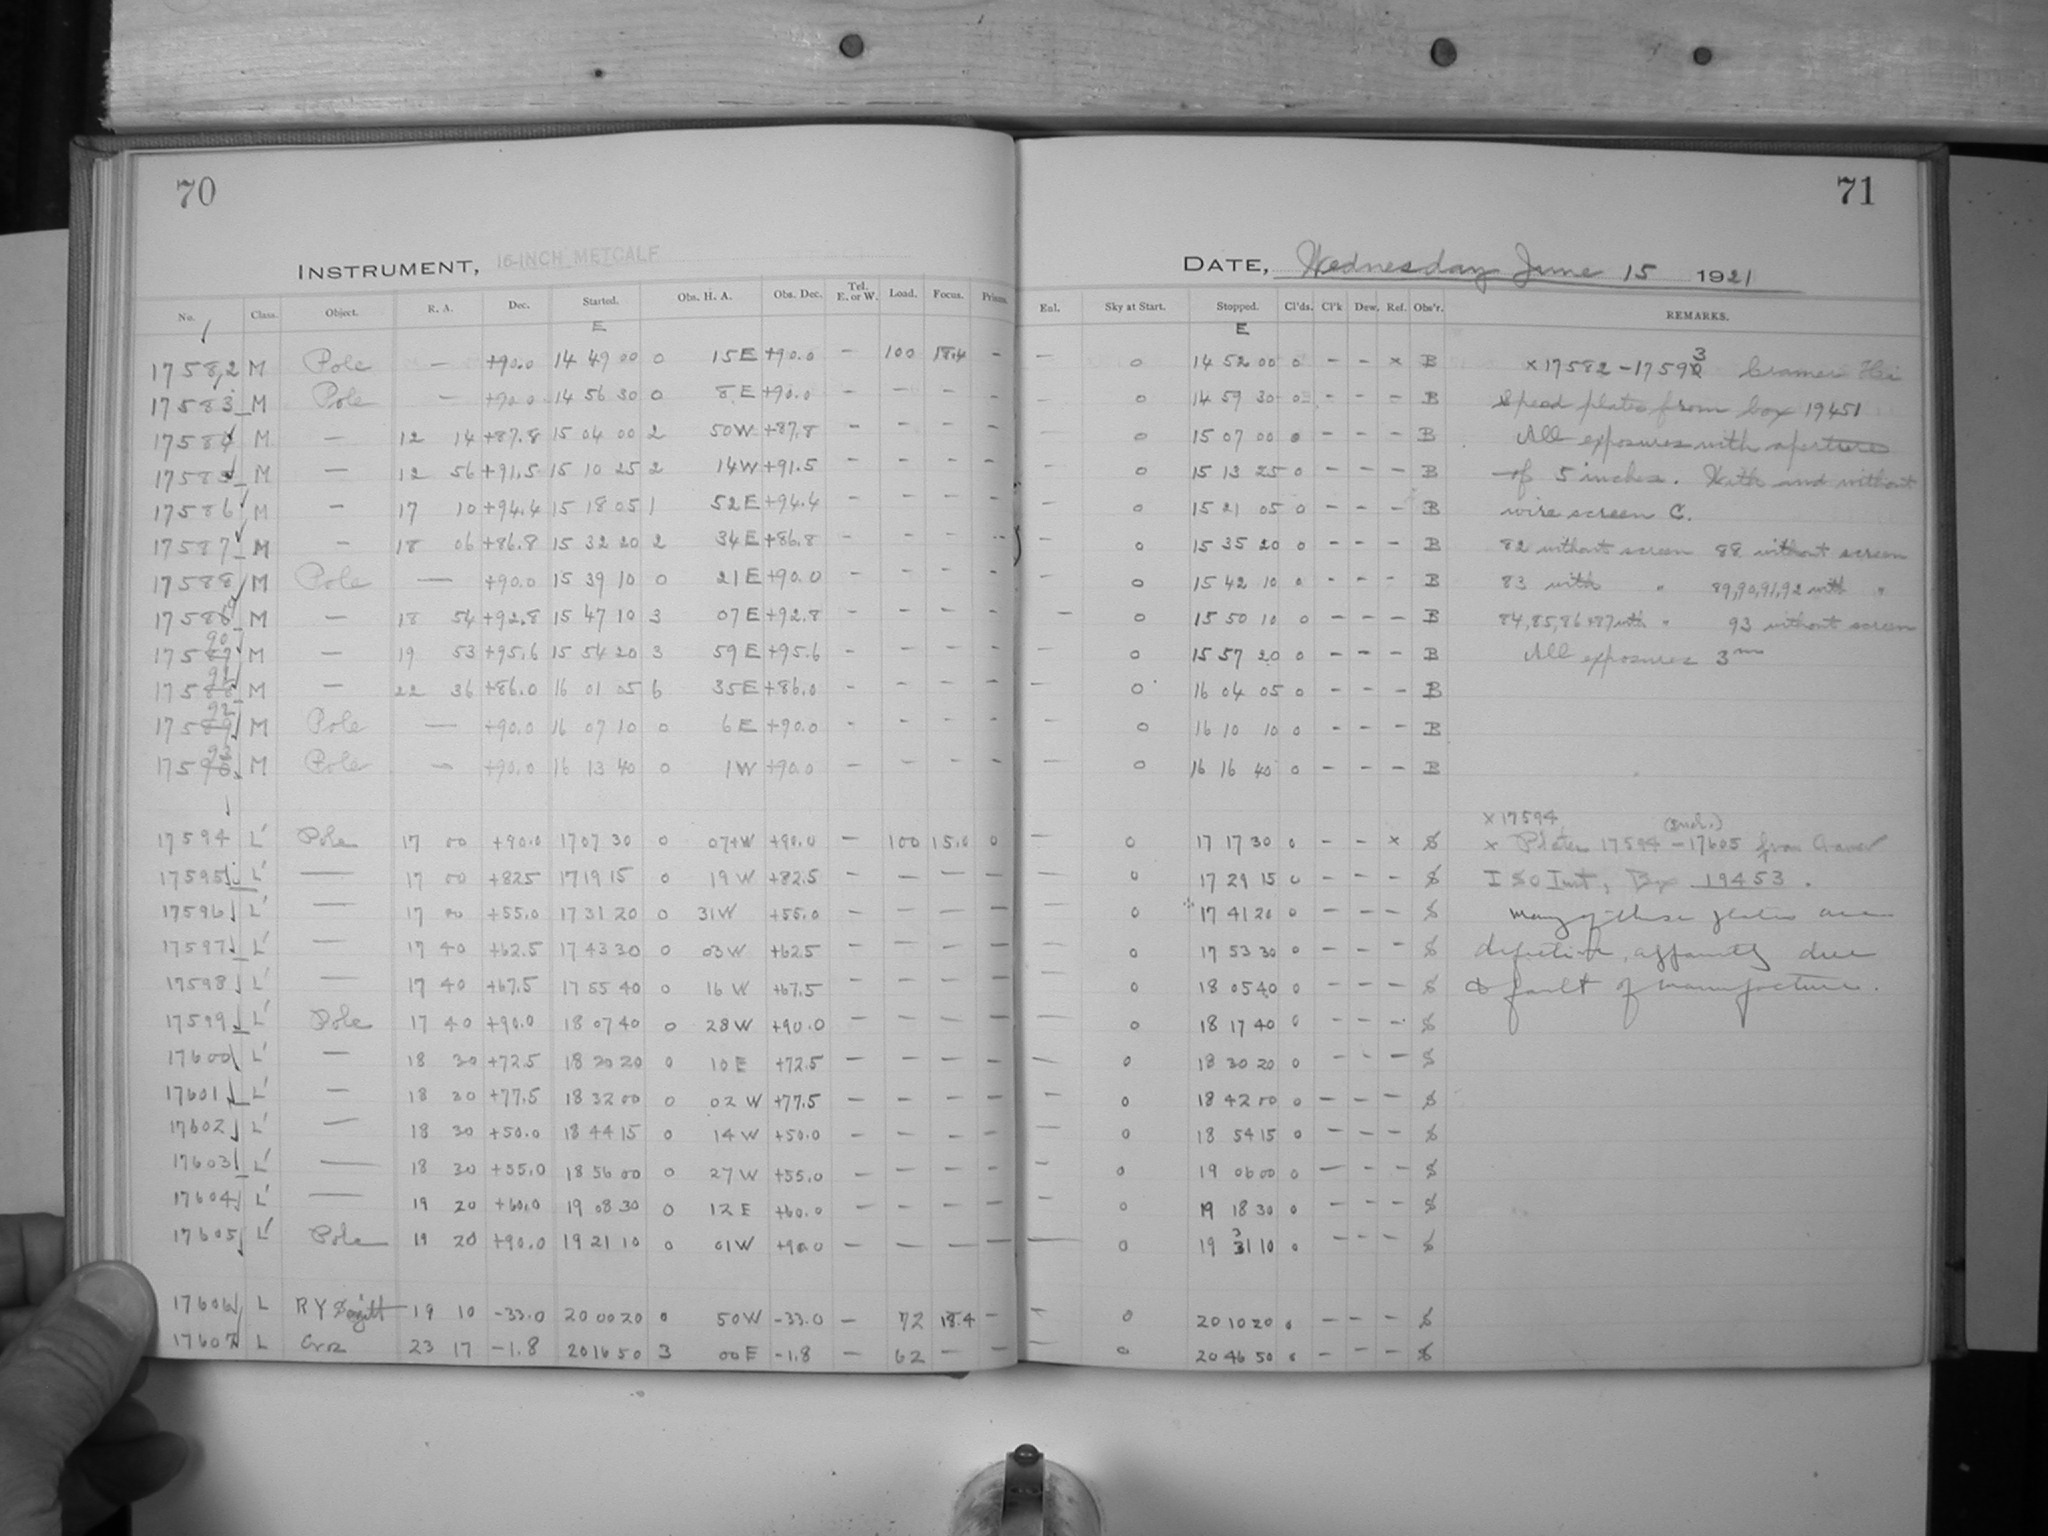 70
71
INSTRUMENT, 16-INCH METCALF
DATE, Wednesday June 15 1921
No. Class. Object. R. A. Dec. Started. Obs. H. A. Obs. Dec. Tel. E. or W. Load. Focus. Prisms. Enl. Sky at Start. Stopped. Cl'ds. Cl'k Dew. Ref. Obs'r. REMARKS.
E E
17582 M Pole — +90.0 14 49 00 0 15 E +90.0 - 100 18.4 - — 0 14 52 00 0 - - x B x 17582 - 17593 Cramer Hi
17583 M Pole — +90.0 14 56 30 0 8 E +90.0 - - - - - 0 14 59 30 0 - - - B Speed plates from box 19451
17584 M — 12 14 +87.8 15 04 00 2 50 W +87.8 - - - - — 0 15 07 00 0 - - - B All exposures with aperture
17585 M — 12 56 +91.5 15 10 25 2 14 W +91.5 - - - - — 0 15 13 25 0 - - - B of 5 inches. With and without
17586 M — 17 10 +94.4 15 18 05 1 52 E +94.4 - - - - — 0 15 21 05 0 - - - B wire screen C.
17587 M - 18 06 +86.8 15 32 20 2 34 E +86.8 - - - - - 0 15 35 20 0 - - - B 82 without screen 88 without screen
17588 M Pole — +90.0 15 39 10 0 21 E +90.0 - - - - — 0 15 42 10 0 - - - B 83 with " 89,90,91,92 with "
17589 M — 18 54 +92.8 15 47 10 3 07 E +92.8 - - - - — 0 15 50 10 0 - - - B 84,85,86+87 with " 93 without screen
17590 M — 19 53 +95.6 15 54 20 3 59 E +95.6 - - - - 0 15 57 20 0 - - - B All exposures 3m
17591 M — 22 36 +86.0 16 01 05 6 35 E +86.0 - - - - — 0 16 04 05 0 - - - B
17592 M Pole — +90.0 16 07 10 0 6 E +90.0 - - - - — 0 16 10 10 0 - - - B
17593 M Pole — +90.0 16 13 40 0 1 W +90.0 - - - - — 0 16 16 40 0 - - - B
x 17594 (incl.)
17594 L' Pole 17 00 +90.0 17 07 30 0 07 W +90.0 - 100 15.0 0 — 0 17 17 30 0 - - x S x Plates 17594 - 17605 from Cramer
17595 L' — 17 00 +82.5 17 19 15 0 19 W +82.5 - - - - — 0 17 29 15 0 - - - S Iso Inst, Box 19453.
17596 L' — 17 00 +55.0 17 31 20 0 31 W +55.0 - - - - — 0 17 41 20 0 - - - S Many of these plates are
17597 L' — 17 40 +62.5 17 43 30 0 03 W +62.5 - - - - — 0 17 53 30 0 - - - S defective, apparently due
17598 L' — 17 40 +67.5 17 55 40 0 16 W +67.5 - - - - — 0 18 05 40 0 - - - S to fault of manufacture.
17599 L' Pole 17 40 +90.0 18 07 40 0 28 W +90.0 - - - - — 0 18 17 40 0 - - - S
17600 L' — 18 30 +72.5 18 20 20 0 10 E +72.5 - - - - — 0 18 30 20 0 - - - S
17601 L' — 18 30 +77.5 18 32 00 0 02 W +77.5 - - - - — 0 18 42 00 0 - - - S
17602 L' — 18 30 +50.0 18 44 15 0 14 W +50.0 - - - - — 0 18 54 15 0 - - - S
17603 L' — 18 30 +55.0 18 56 00 0 27 W +55.0 - - - - - 0 19 06 00 0 - - - S
17604 L' — 19 20 +60.0 19 08 30 0 12 E +60.0 - - - - - 0 19 18 30 0 - - - S
17605 L' Pole 19 20 +90.0 19 21 10 0 01 W +90.0 - - - - — 0 19 31 10 0 - - - S
17606 L RY Sagitt 19 10 -33.0 20 00 20 0 50 W -33.0 - 72 18.4 - - 0 20 10 20 0 - - - S
17607 L 23 17 -1.8 20 16 50 3 00 E -1.8 - 62 - - - 0 20 46 50 0 - - - S